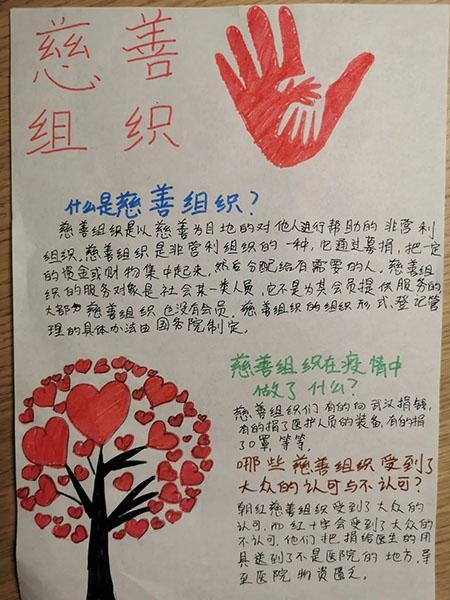 慈善
组织
什么是慈善组织?
慈善组织是以慈善为目地的对他人进行帮助的非营利
组织。慈善组织是非营利组织的一种,它通过募捐,把一定
的资金或财物集中起来,然后分配给有需要的人。慈善组
织的服务对象是社会某一类人员,它不是为其会员提供服务的
大部分慈善组织也没有会员。慈善组织的组织形式登记管
理的具体办法由国务院制定。
慈善组织在疫情中
做了什么?
慈善组织们有的向武汉捐钱,
有的捐了医护人员的装备,有的捐
了口罩,等等。
哪些慈善组织受到了
大众的认可与不认可?
朝红慈善组织受到了大众的
认可,而红十字会受到了大众的
不认可,他们把捐给医生的用
具送到了不是医院的地方,导
至医院物资匮乏。